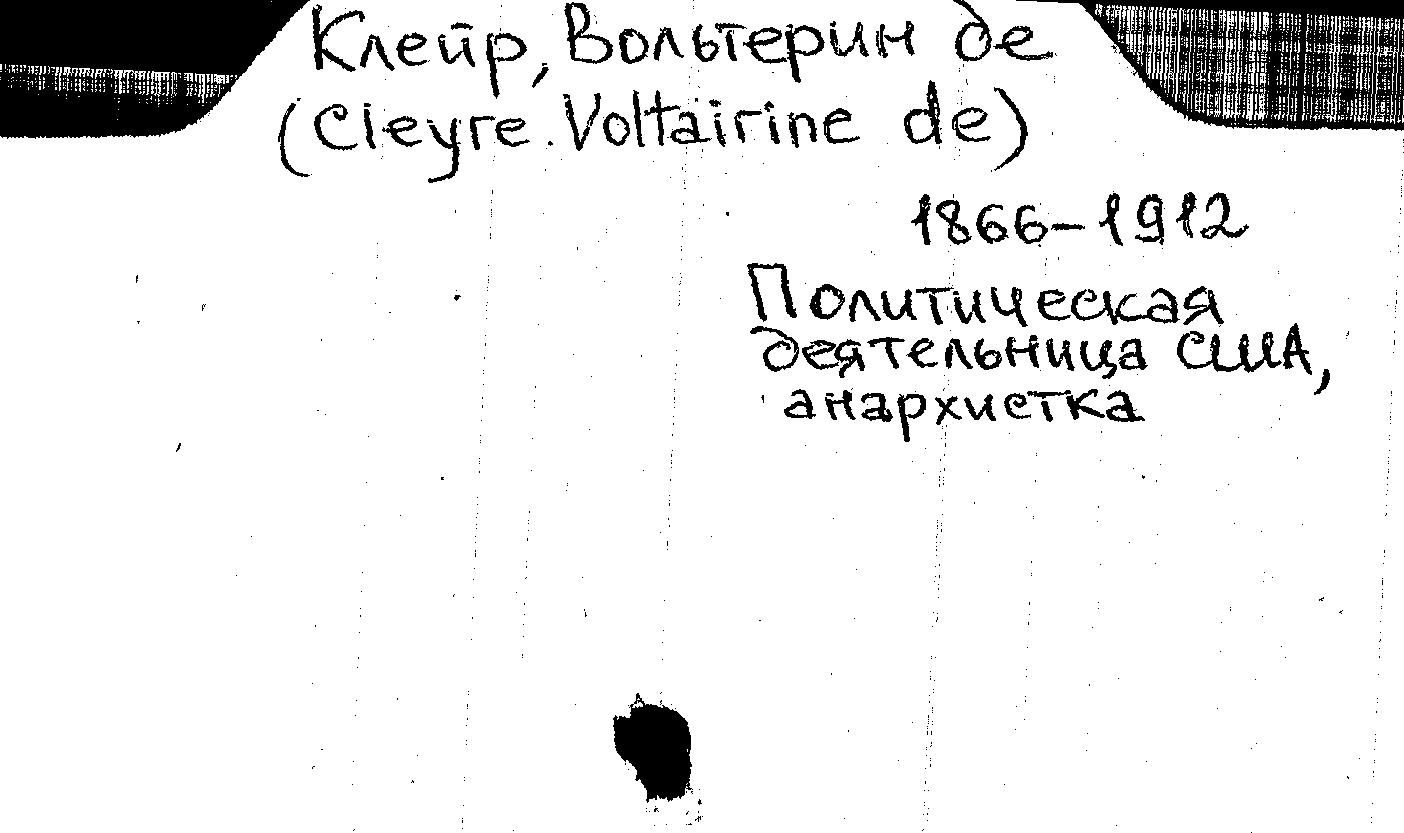 Клейр, Вольтерин де
(Cleyre. Voltairine de)
1866–1912
Политическая
деятельница США,
анархистка